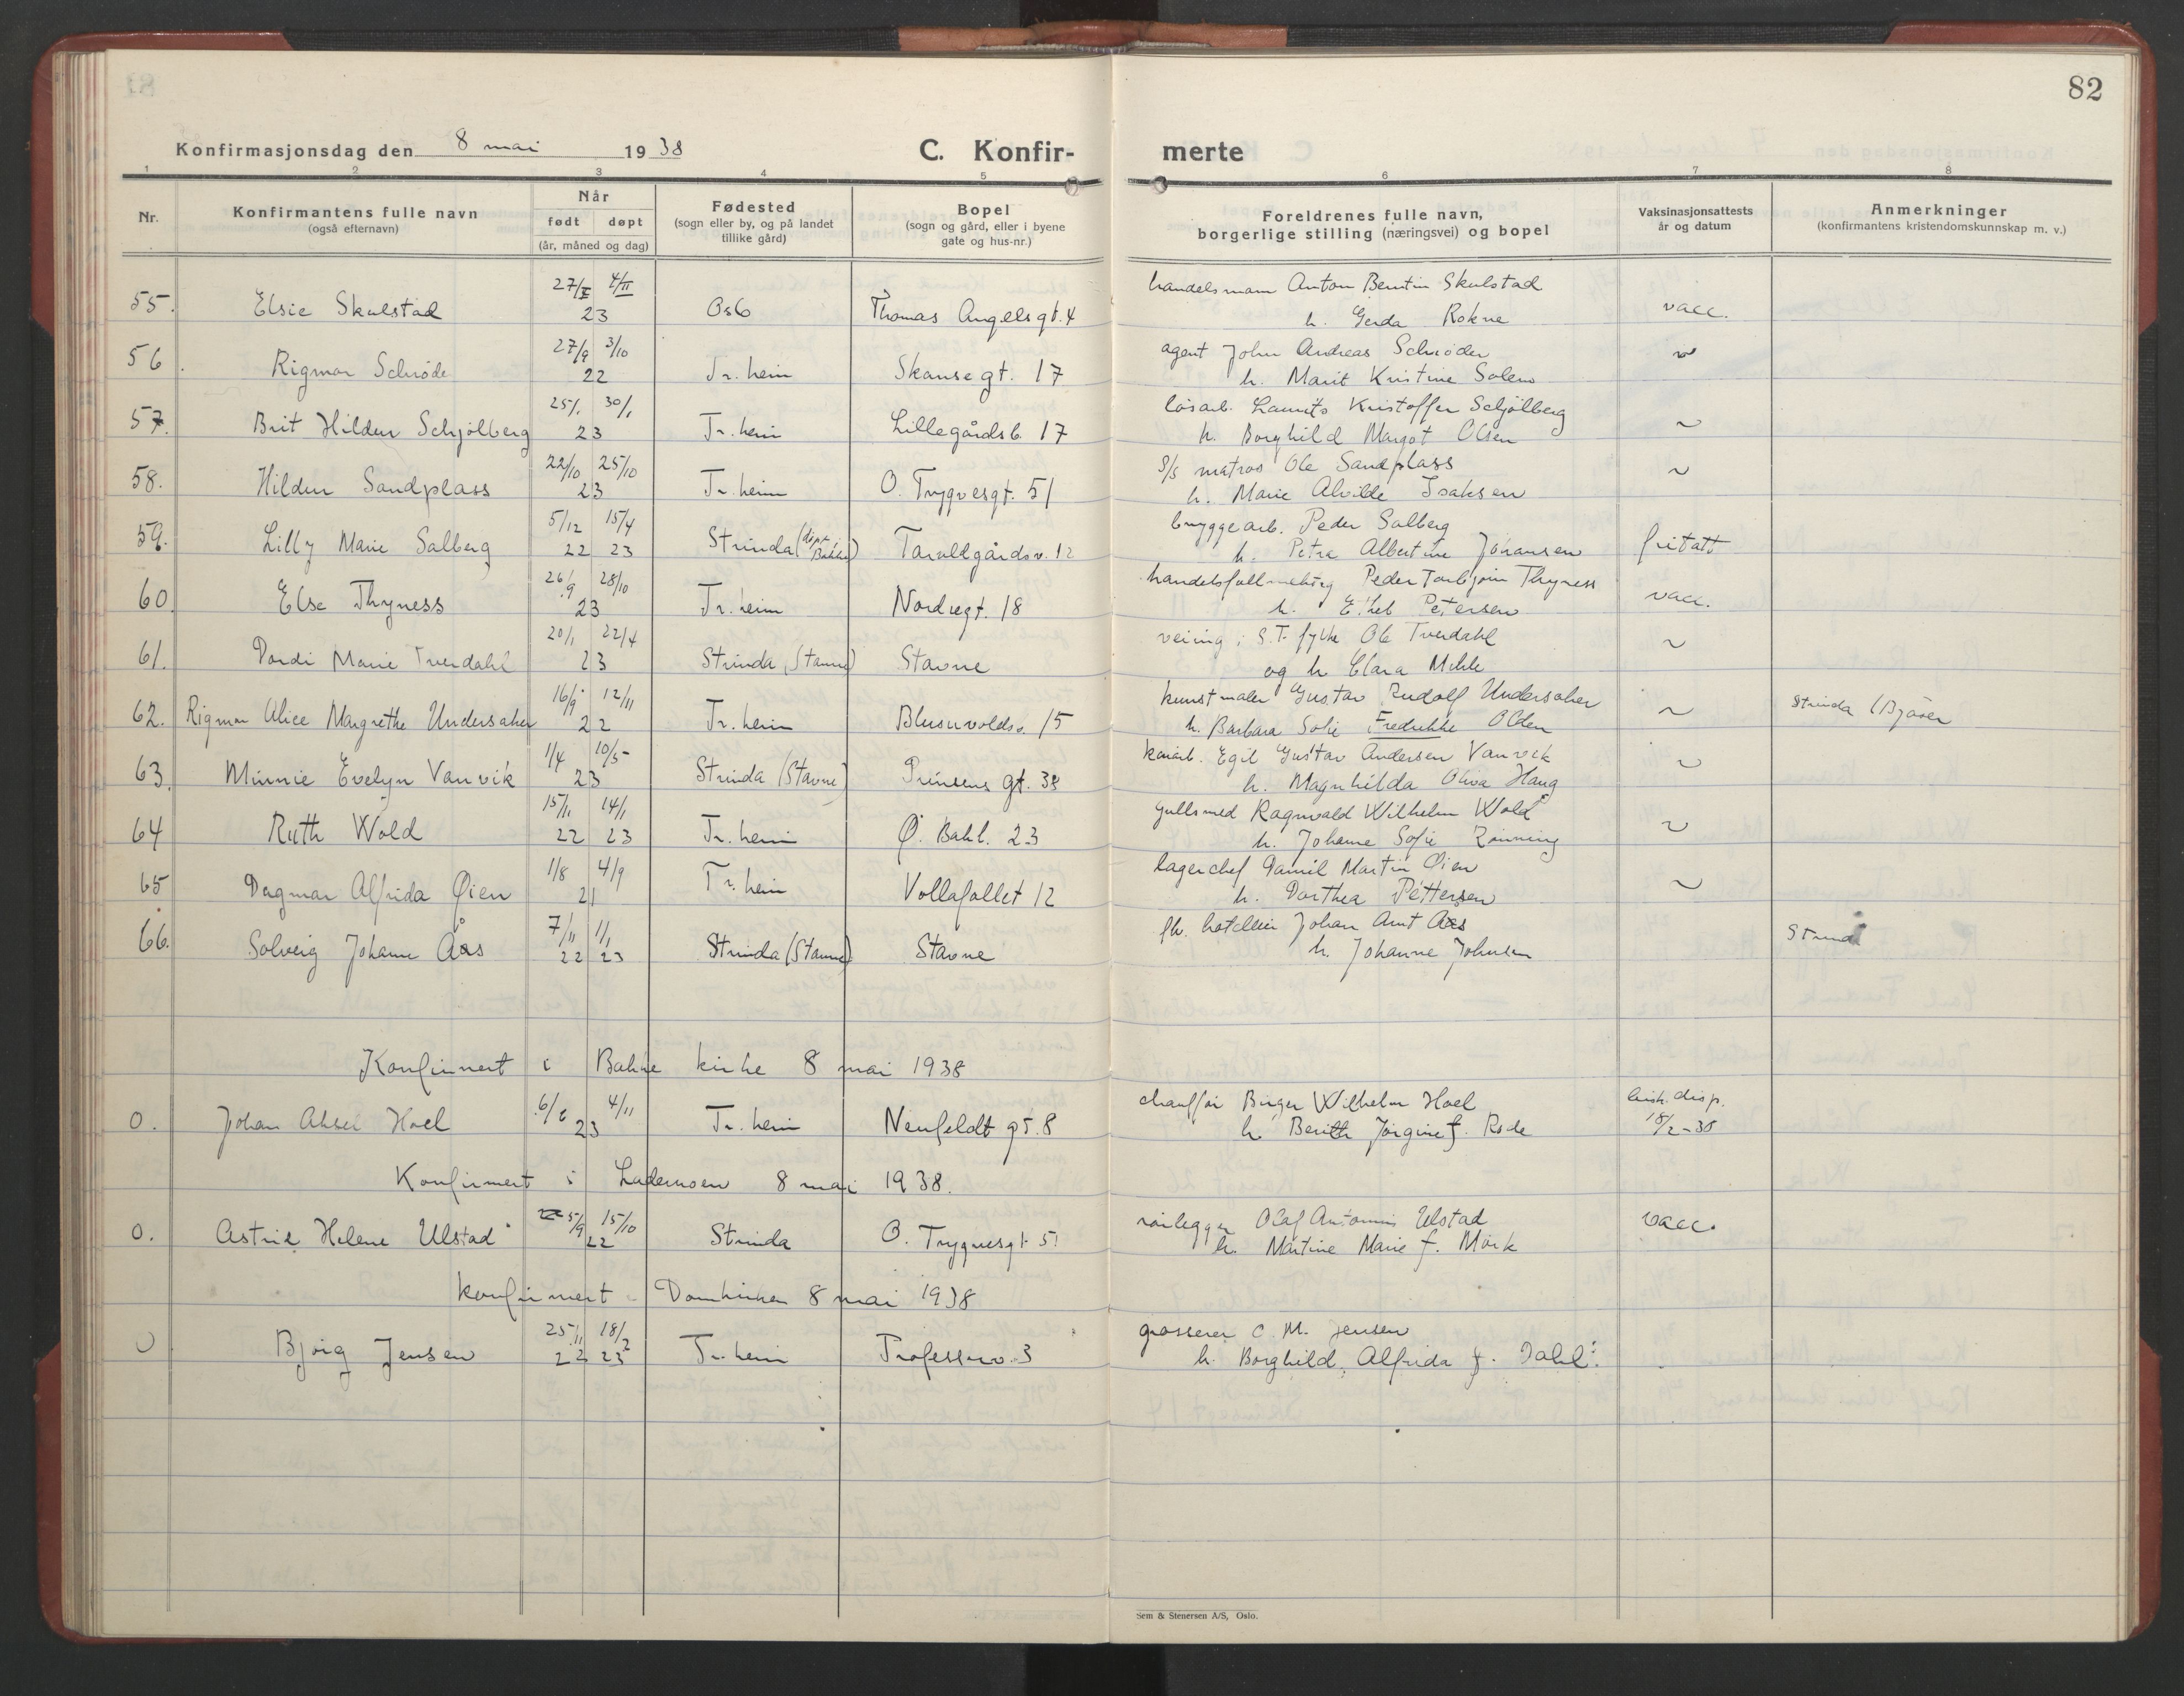 82
Konfirmasjonsdag den 8 mai 1938
C. Konfir-
merte
1 2 3 4 5 6 7 8
Nr.
Konfirmantens fulle navn
(også efternavn)
Når
født døpt
(år, måned og dag)
Fødested
(sogn eller by, og på landet
tillike gård)
Bopel
(sogn og gård, eller i byene
gate og hus-nr.)
Foreldrenes fulle navn,
borgerlige stilling (næringsvei) og bopel
Vaksinasjonsattests
år og datum
Anmerkninger
(konfirmantens kristendomskunnskap m. v.)
27/I 4/II handelsmann Anton Berntin Skulstad
55. Elsie Skulstad 23 Oslo Thomas Angelsgt. 4 h. Gerda Rokne vacc.
27/9 3/10 agent John Andreas Schrøder
56. Rigmor Schrøde 22 Tr. heim Skansegt. 17 h. Marit Kristine Solem ~
25/1 30/1 løsarb. Laurits Kristoffer Schjølberg
57. Brit Hildur Schjølberg 23 Tr. heim Lillegårdsb. 17 h. Borghild Margot Olsen ~
22/10 25/10 S/S matros Ole Sandplass
58. Hildur Sandplass 23 Tr. heim O. Trygvesgt. 51 h. Marie Alvilde Isaksen ~
5/12 15/4 bryggearb. Peder Salberg
59. Lilly Marie Salberg 22 23 Strinda (døpt Bakke) Taraldgårdsv. 12 h. Petra Albertine Johansen fritatt
26/9 28/10 handelsfullmektig Peder Torbjørn Thyness
60. Else Thyness 23 Tr. heim Nordregt. 18 h. Ethel Petersen vacc.
20/1 22/4 veiing. i S.T. fylke Ole Tverdahl
61. Dordi Marie Tverdahl 23 Strinda (Stavne) Stavne og h Clara Mikk ~
16/9 12/11 kunstmaler Gustav Rudolf Undersaker
62. Rigmor Alice Margrethe Undersaker 22 Tr. heim Blusuvoldsv. 15 h. Barbara Sofie Fredrikke Olden ~ Strinda (Bjåsen
1/4 10/5 Egil Gustav Andersen Vanvik
63. Minnie Evelyn Vanvik 23 Strinda (Stavne) Prinsens gt. 38 h. Magnhilda Oliva Haug ~
15/11 14/1 gullsmed Ragnvald Wilhelm Wold
64 Ruth Wold 22 23 Tr. heim Ø. Bakl. 23 h. Johanne Sofie Rønning ~
1/8 4/9 lagerchef Daniel Martin Øien
65 Dagmar Alfrida Øien 21 Tr. heim Vollafallet 12 h. Dorthea Pettersen ~
7/11 1/1 fh. hotelleier Johan Arnt Aas
66. Solveig Johanne Aas 22 23 Strinda (Stavne) Stavne h. Johanne Johnsen Strinda
Konfirmert i Bakke kirke 8 mai 1938
6/6 4/11 chauffør Birger Wilhelm Hoel
0. Johan Aksel Hoel 23 Tr. heim Neufeldt gt. 8 h Berith Jørgine f. Rode bisk. disp. 18/2-38
Konfirmert i Lademoen 8 mai 1938.
5/9 15/10 rørlegger Olaf Antonius Ulstad
0. Astrid Helene Ulstad 22 Strinda O. Trygvesgt 51 h. Martine Marie f. Mørk vacc.
konfirmert i Domkirken 8 mai 1938
25/11 18/2 grosserer C. M. Jensen
0 Bjørg Jensen 22 23 Tr. heim Professorv. 3 h. Borghild Alfrida f. Dahl.
Sem & Stenersen A/S, Oslo.